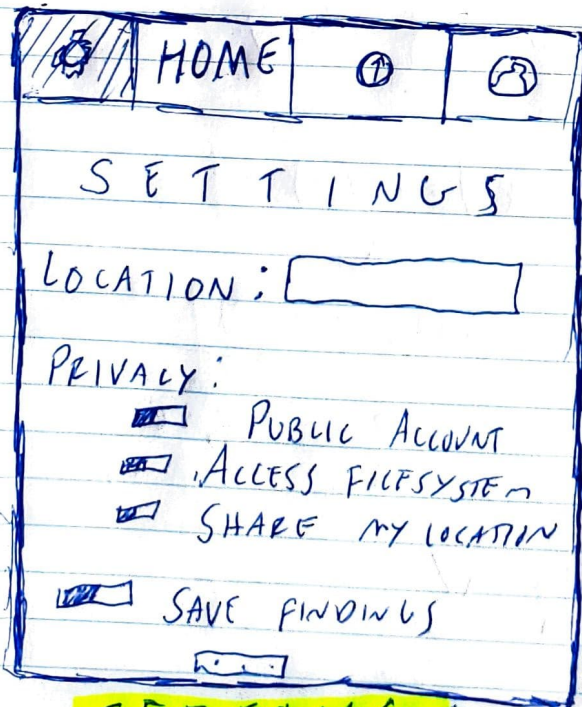 HOME
SETTINGS
LOCATION:
PRIVACY:
PUBLIC ACCOUNT
ACCESS FILESYSTEM
SHARE MY LOCATION
SAVE FINDINGS